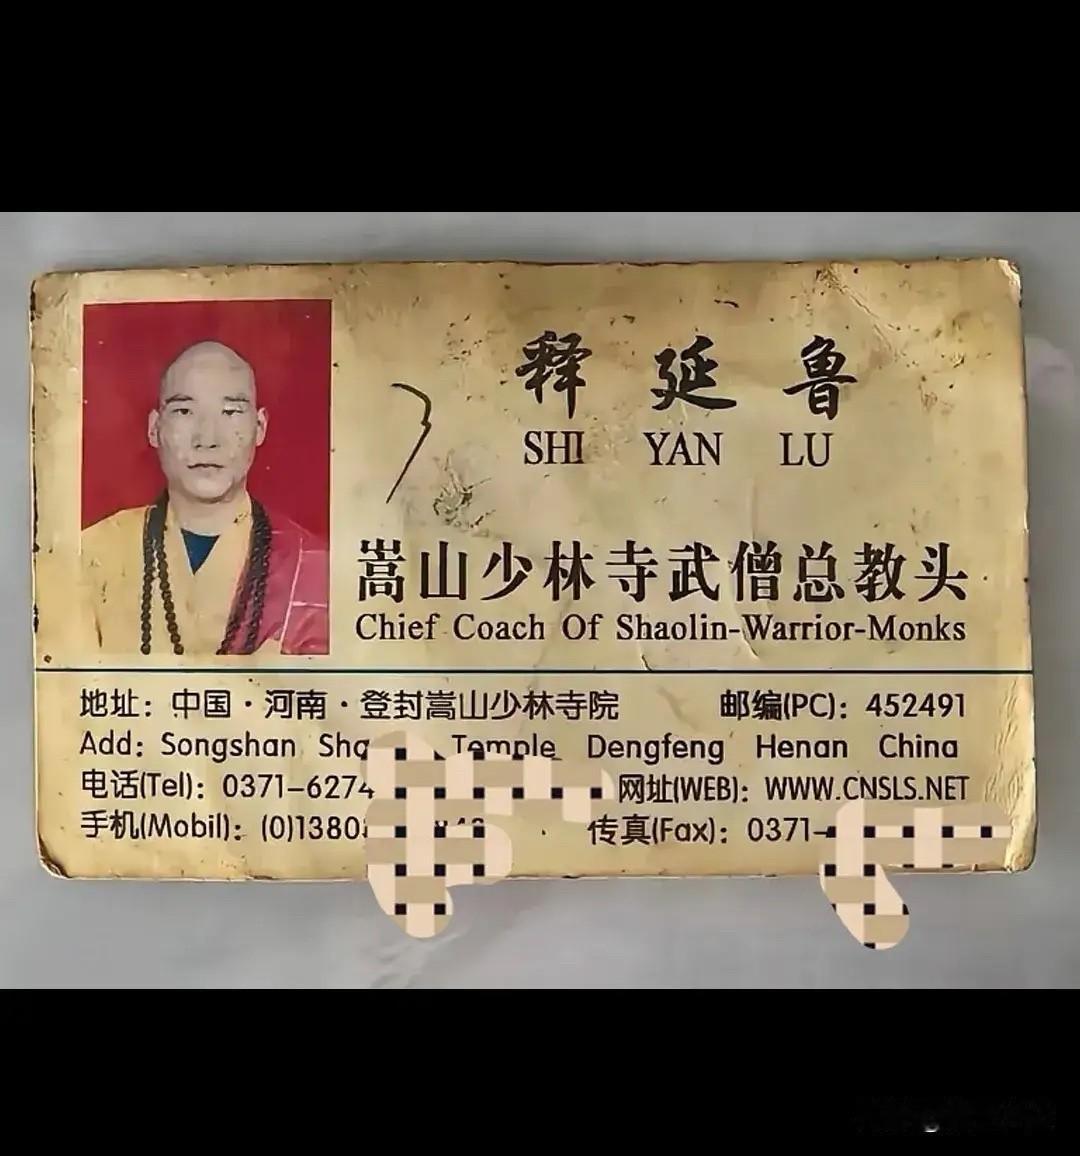 释延鲁
SHI YAN LU
嵩山少林寺武僧总教头
Chief Coach Of Shaolin-Warrior-Monks
地址：中国·河南·登封嵩山少林寺院 邮编(PC)：452491
Add: Songshan Temple Dengfeng Henan China
电话(Tel)：0371-6274 网址(WEB)：WWW.CNSLS.NET
手机(Mobil)：(0)1380 传真(Fax)：0371-